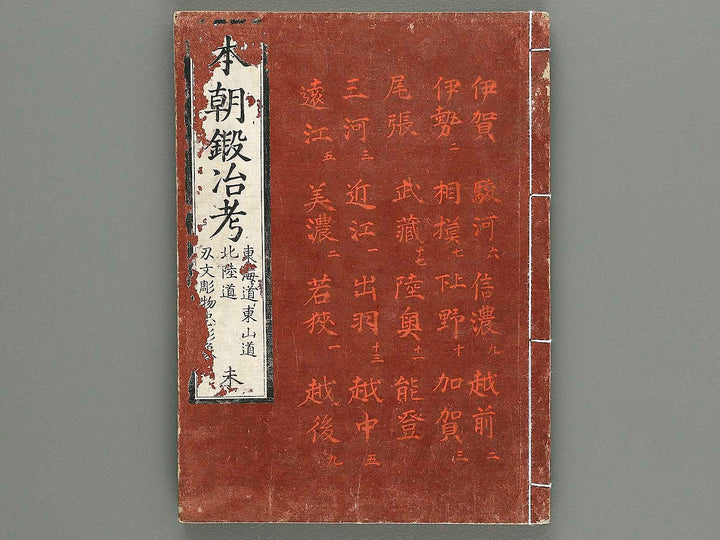 伊賀 駿河六 信濃九 越前二
伊勢二 相摸七 上下野十 加賀三
尾張 武藏十七 陸奥十一 能登
三河三 近江一 出羽十三 越中五
遠江五 美濃二 若狹一 越後九
本朝鍛冶考
東海道東山道
北陸道
刄文彫物
未